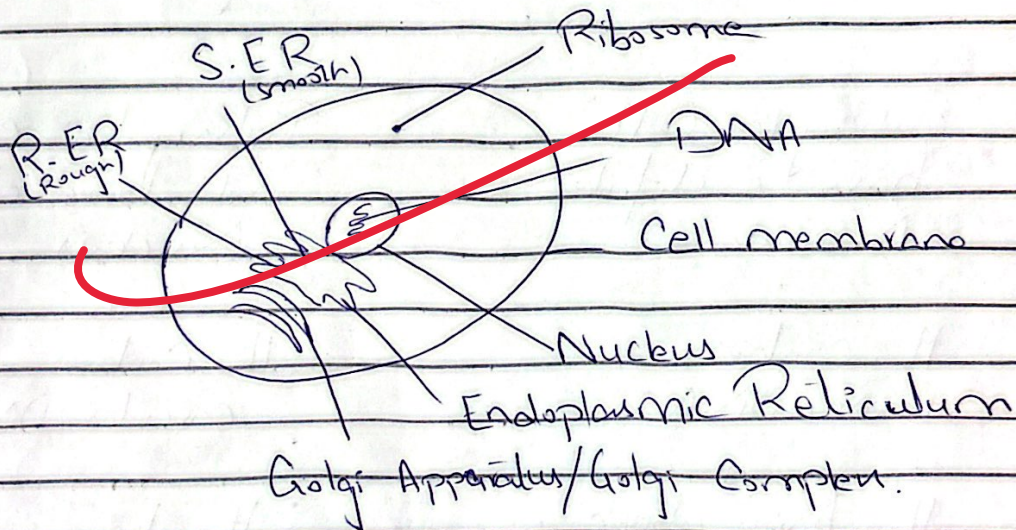 Ribosome
S.ER
(Smooth)
DNA
R-ER
(Rough)
Cell membrane
Nucleus
Endoplasmic Reticulum
Golgi Apparatus/Golgi Complex.